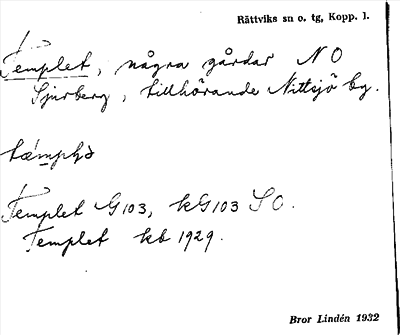 Rättviks sn o. tg, Kopp. l.
Templet, några gårdar N O
Sjurberg, tillhörande Nittsjö by.
Templet G103, kG103 S O.
Templet kb 1929.
Bror Lindén 1932